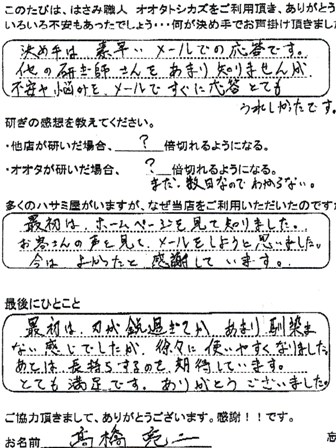 このたびは、はさみ職人 オオタトシカズをご利用頂き、ありがとう
いろいろ不安もあったでしょう・・・何が決め手でお声掛け頂きまし
決め手は 素早い メールでの応答です。
他の研ぎ師さんを あまり知りませんが
不安や悩みを、メールで すぐに 応答 とても
うれしかったです。
研ぎの感想を教えてください。
・他店が研いだ場合、 ? 倍切れるようになる。
・オオタが研いだ場合、 ? 倍切れるようになる。
まだ、数日なので わからない。
多くのハサミ屋がいますが、なぜ当店をご利用いただいたのですか
最初は、ホームページを見て知りました。
お客さんの声を見て、メールをしようと思いました。
今は よかったと 感謝しています。
最後にひとこと
最初は 刃が 鋭過ぎてか あまり 馴染ま
ない感じでしたが、徐々に 使いやすくなりました。
あとは 長持ちするので、期待しています。
とても 満足です。ありがとう ございました。
ご協力頂きまして、ありがとうございます。感謝！！です。
お名前 高橋 亮二